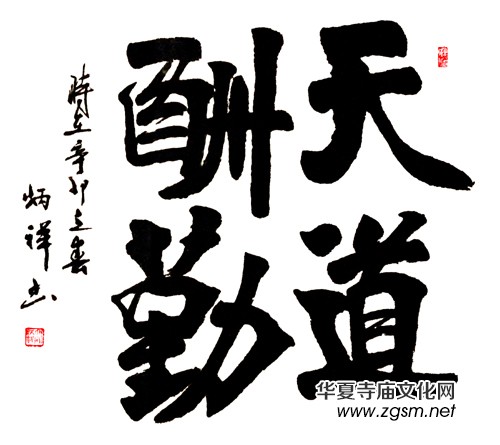 天道
酬勤
時在辛卯立春
炳祥书
华夏寺庙文化网
www.zgsm.net